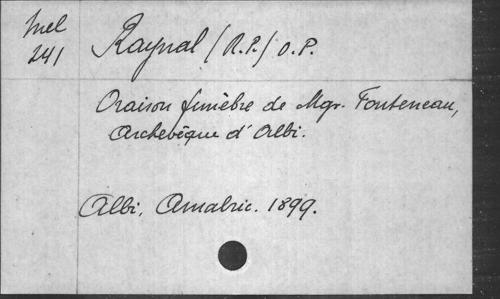 Mel
241
Raynal (R.P.) O.P.
Oraison funèbre de Mgr. Fonteneau,
Archevêque d'Albi.
Albi, Amalric. 1899.